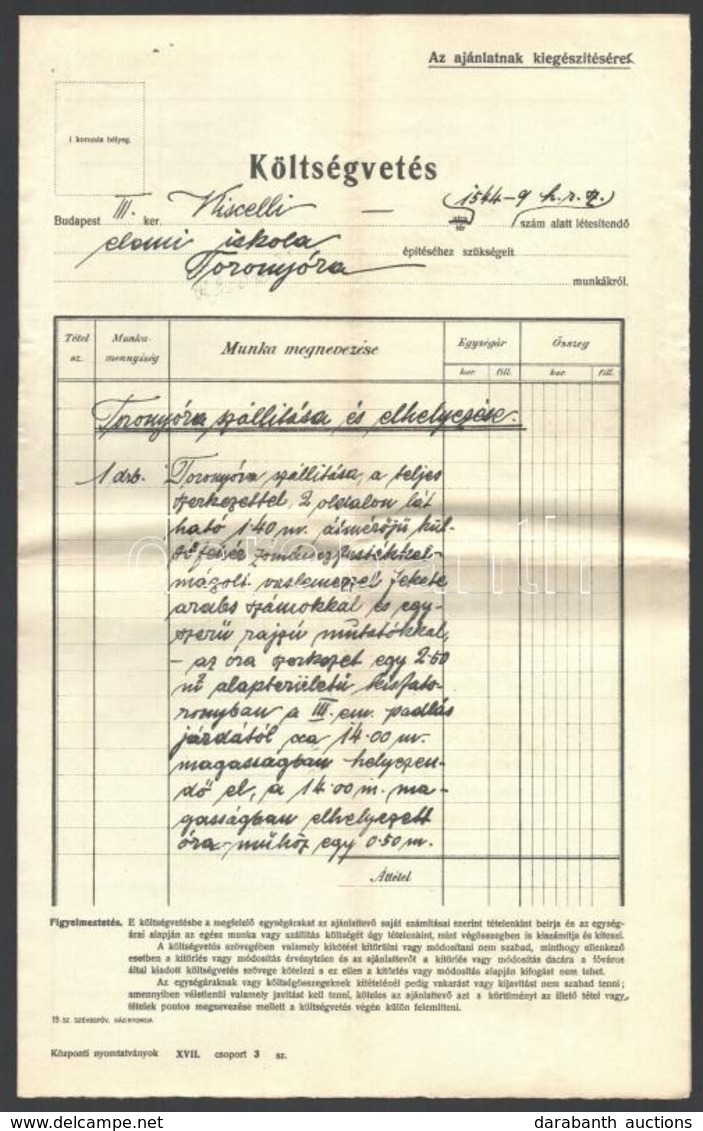 Az ajánlatnak kiegészítésére.
1 koronás bélyeg.
Költségvetés
Budapest III. ker. Kiscelli — utca tér (1564-9 h.r.z.) szám alatt létesitendő
elemi iskola építéséhez szükségelt
Toronyóra munkákról.
Tétel sz. Munka-mennyiség Munka megnevezése Egységár Összeg
kor. fill. kor. fill.
Toronyóra szállitása és elhelyezése.
1 drb. Toronyóra szállitása, a teljes
szerkezettel, 2 oldalon lát
ható 1·40 m. átmérőjű kül-
ső fehér zománcz festékkel
mázolt vaslemezzel fekete
arabs számokkal és egy-
szerü rajzú mutatókkal,
– az óra szerkezet egy 2·50
m² alapterületű kisfato-
ronyban a III. em. padlás
járdától cca 14·00 m.
magasságban helyezen-
dő el, a 14·00 m. ma-
gasságban elhelyezett
óra-műhöz egy 0·50 m.
Áttétel
Figyelmeztetés. E költségvetésbe a megfelelő egységárakat az ajánlattevő saját számításai szerint tételenkint beirja és az egység-
árai alapján az egész munka vagy szállítás költségét úgy tételenkint, mint végösszegben is kiszámítja és kiteszi.
A költségvetés szövegében valamely kikötést kitörülni vagy módosítani nem szabad, minthogy ellenkező
esetben a kitörlés vagy módosítás érvénytelen és az ajánlattevőt a kitörlés vagy módosítás dacára a főváros
által kiadott költségvetés szövege kötelezi s ez ellen a kitörlés vagy módosítás alapján kifogást nem tehet.
Az egységáraknak vagy költségösszegeknek kitételénél pedig vakarást vagy kijavítást nem szabad tenni;
amennyiben véletlenül valamely javítást kell tenni, köteles az ajánlattevő azt a körülményt az illető tétel vagy
tételek pontos megnevezése mellett a költségvetés végén külön felemlíteni.
19 SZ. SZÉKESFŐV. HÁZINYOMDA
Központi nyomtatványok XVII. csoport 3 sz.
darabanth auctions